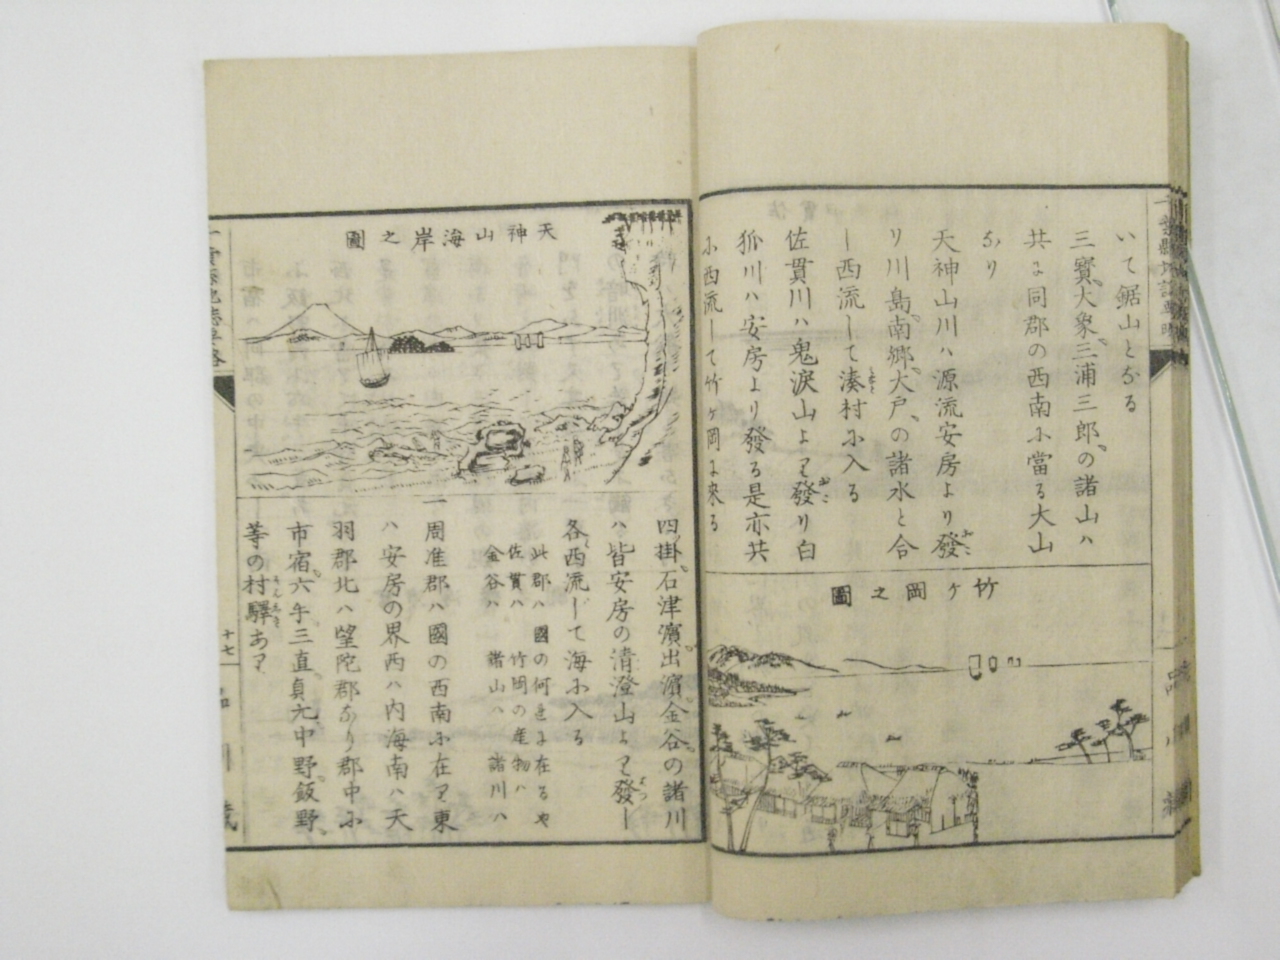 いて鋸山となる
三寳、大象、三浦三郎、の諸山ハ
共に同郡の西南に當る大山
なり
天神山川ハ源流安房より發
り川島、南郷、大戸、の諸水と合
し西流して湊村に入る
佐貫川ハ鬼涙山より發り白
狐川ハ安房より發る是亦共
に西流して竹ヶ岡に来る
竹ヶ岡之圖
天神山海岸之圖
四掛、石津濱、出濱、金谷、の諸川
ハ皆安房の清澄山より發し
各西流して海に入る
此郡ハ國の何邊に在るや
佐貫ハ竹岡の産物ハ
金谷ハ諸山ハ諸川ハ
一周准郡ハ國の西南に在り東
ハ安房の界西ハ内海南ハ天
羽郡北ハ望陀郡なり郡中に
市宿、六手、三直、貞元、中野、飯野、
等の村驛あり
十七